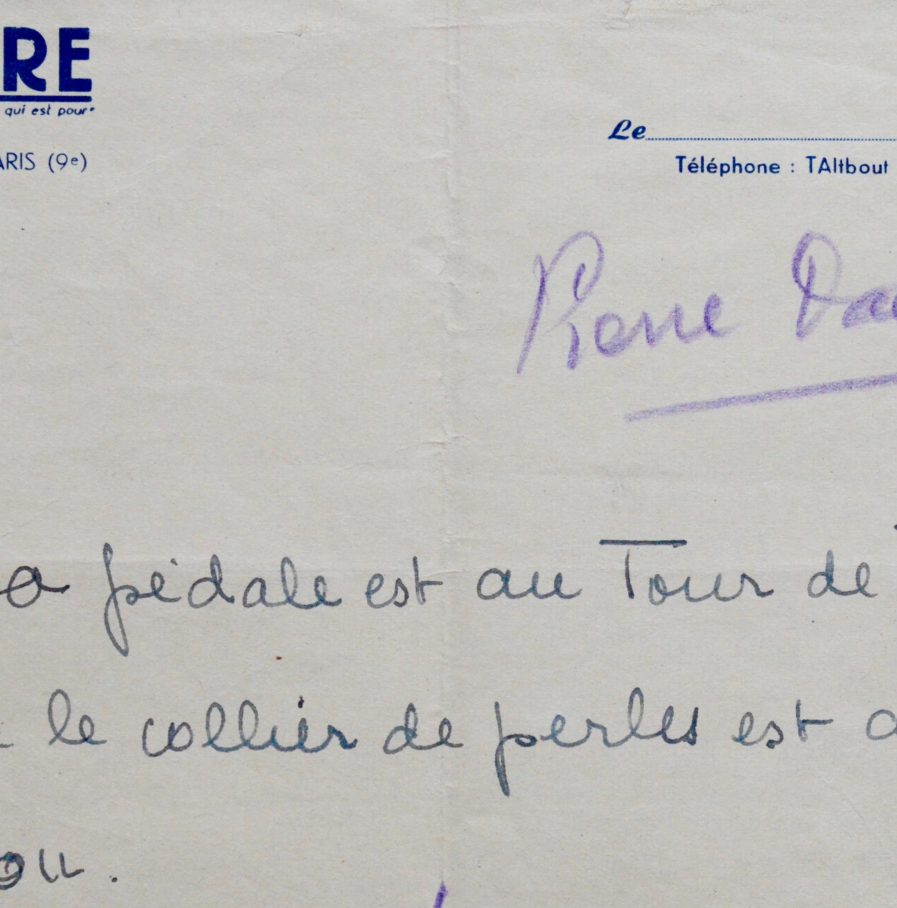 RE
qui est pour"
ARIS (9e)
Le
Téléphone : TAItbout
Pierre Da
a pédale est au Tour de
le collier de perles est a
ou.